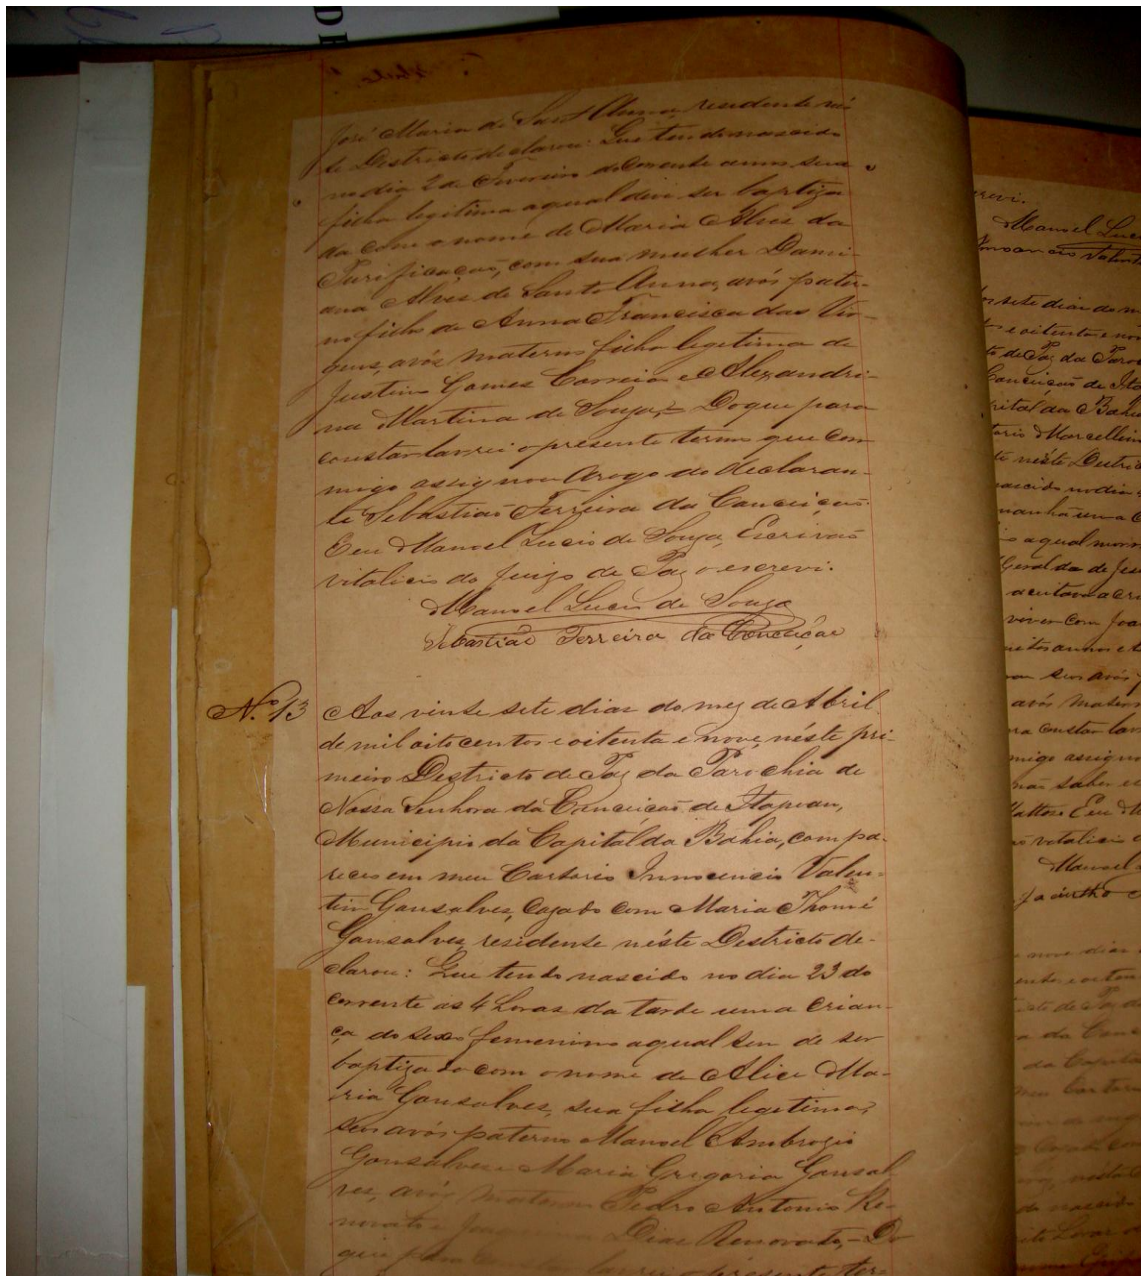 José Maria de Sant'Anna, residente nés-
te Districto declarou: Que tendo nascido
no dia 2 de Fevereiro do corrente anno sua
filha legitima a qual deve ser baptiza-
da com o nome de Maria Alves da
Purificação, com sua mulher Dami-
ana Alves de Santa Anna, avós pater-
no filho de Anna Francisca das Vir-
gens, avós materno filha legitima de
Justino Gomes Correia e Alexandri-
na Martina de Souza. Do que para
constar lavrei o presente termo que com-
migo assignou arogo do declaran-
te Sebastião Ferreira da Conceição.
Eeu Manoel Lucio de Souza, Escrivão
vitalicio do Juizo de Paz o escrevi.
Manoel Lucio de Souza
Sebastião Ferreira da Conceição
Nº 13 Aos vinte sete dias do mez de Abril
de mil oito centos e oitenta e nove, néste pri-
meiro Districto de Paz da Parochia de
Nossa Senhora da Conceicão de Itapoan,
Municipio da Capital da Bahia, compa-
receo em meu Cartorio Innocencio Valen-
tim Gonsalves, Cazado com Maria Thomé
Gonsalves, residente néste Districto de-
clarou: Que tendo nascido no dia 23 do
corrente as 4 horas da tarde uma crian-
ça do sexo femenino a qual tem de ser
baptizado com o nome de Alice Ma-
ria Gonsalves, sua filha legitima,
seus avós paterno Manoel Ambrozio
Gonsalves e Maria Grigoria Gonsal-
ves, avós maternos Pedro Antonio Re-
novato e Dias Renovato, - Do
que para constar lavrei o presente ter-
screvi.
Manoel Luci
Innocencio Valent
sete dias do m
e oitenta e nov
to de Paz da Paro
Conceicão de Ita
pital da Bahia
torio Marcellin
te néste Distric
nascido no dia
manhã uma C
a qual
Geralda de Jes
viver com Joa
seus avós p
avós matern
ra constar lav
migo assigno
não saber e
Mattos Eeu M
vitalicio
Manoel
Jacintho
nove dias
da Conc
da Capital
meu Cartor
nascido